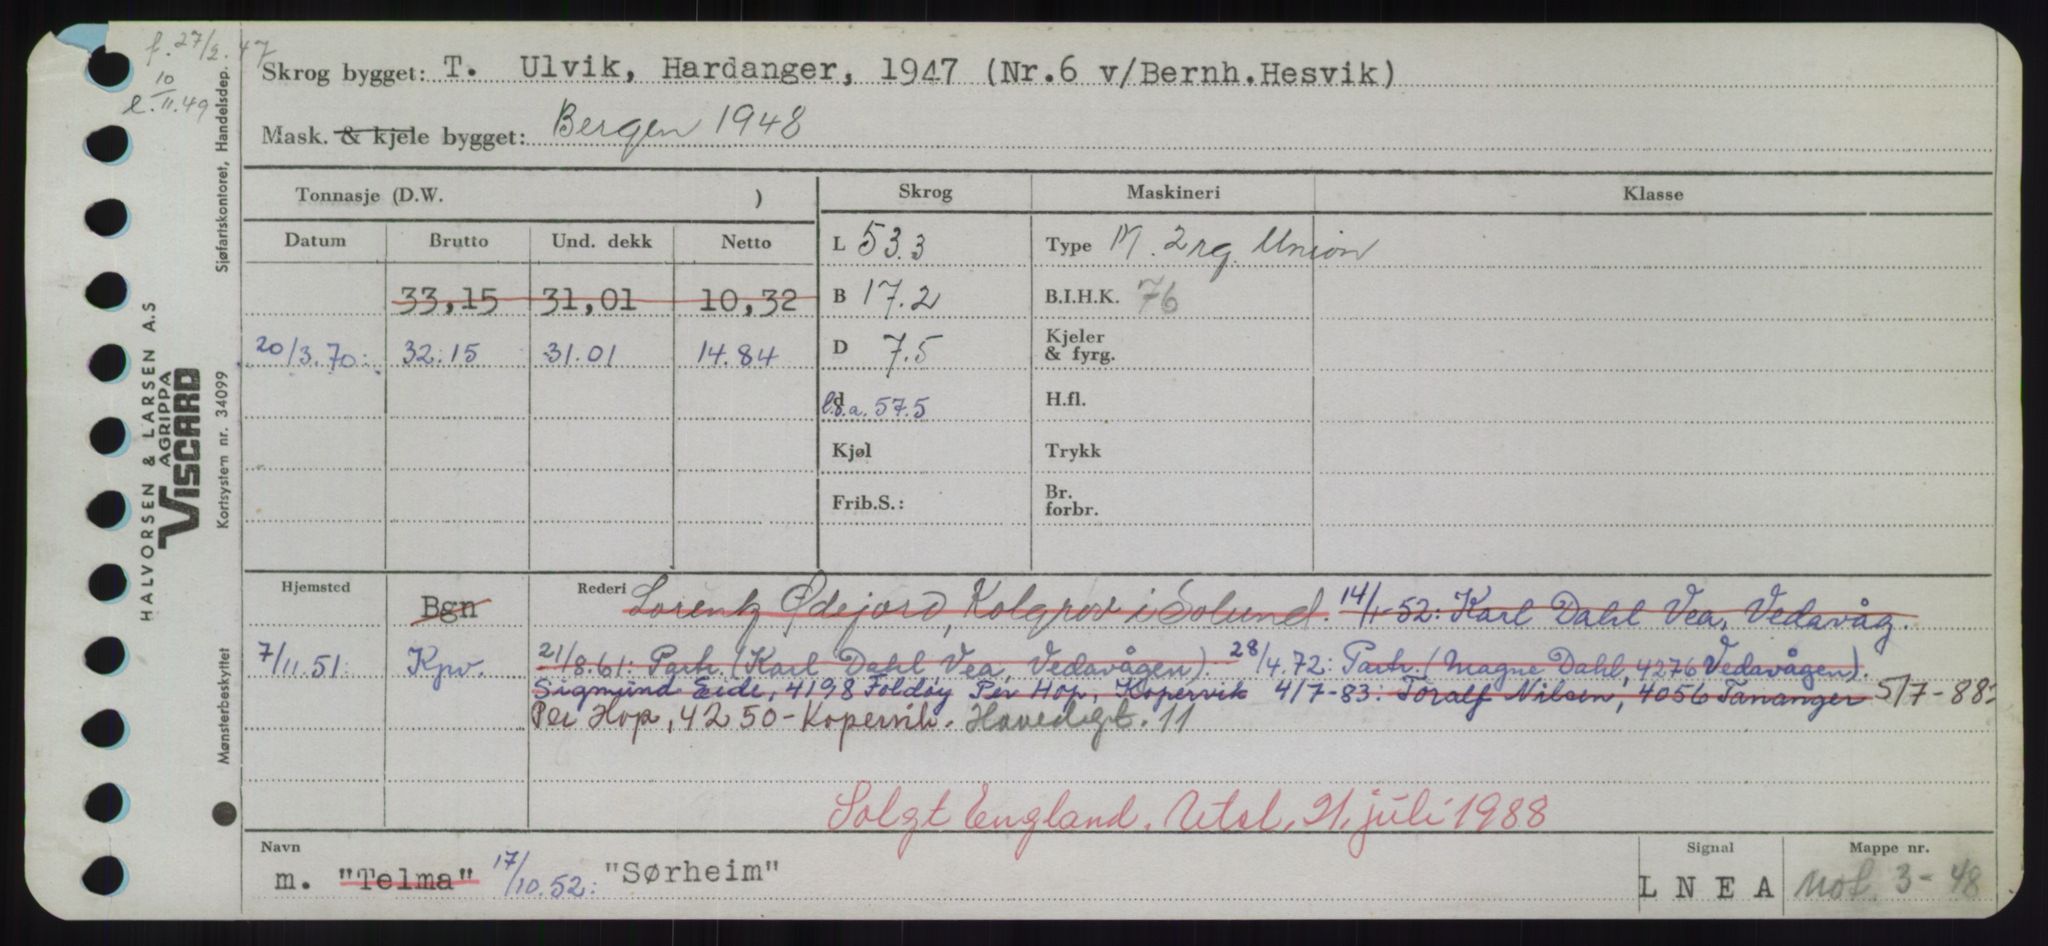 f. 27/2. 47
10
e. 11.49
Skrog bygget: T. Ulvik, Hardanger, 1947 (Nr.6 v/Bernh.Hesvik)
Mask. & kjele bygget: Bergen 1948
Sjøfartskontoret, Handelsdep.
HALVORSEN & LARSEN A.S
AGRIPPA
VISCARD
Kortsystem nr. 34099
Mønsterbeskyttet
Tonnasje (D.W. ) Skrog Maskineri Klasse
Datum Brutto Und. dekk Netto L 53.3 Type M. 2 rg. Union
33,15 31,01 10,32 B 17.2 B.I.H.K. 76
20/3.70: 32.15 31.01 14.84 D 7.5 Kjeler
& fyrg.
d l.o.a. 57.5 H.fl.
Kjøl Trykk
Frib.S.: Br.
forbr.
Hjemsted Bgn Rederi Lorentz Ødejord, Kolgrov i Solund. 14/1-52: Karl Dahl Vea, Vedavåg.
7/11.51: Kpv. 21/8.61: Partr. (Karl Dahl Vea, Vedavågen). 28/4.72: Partr. (Magne Dahl, 4276 Vedavågen).
Sigmund Eide, 4198 Foldøy Per Hop, Kopervik 4/7-83. Toralf Nilsen, 4056 Tananger 5/7-88:
Per Hop, 4250-Kopervik. Hovedigt. 11
Solgt England. Utsl. 21. juli 1988
Navn Signal Mappe nr.
m. "Telma" 17/10.52: "Sørheim" L N E A Not. 3-48